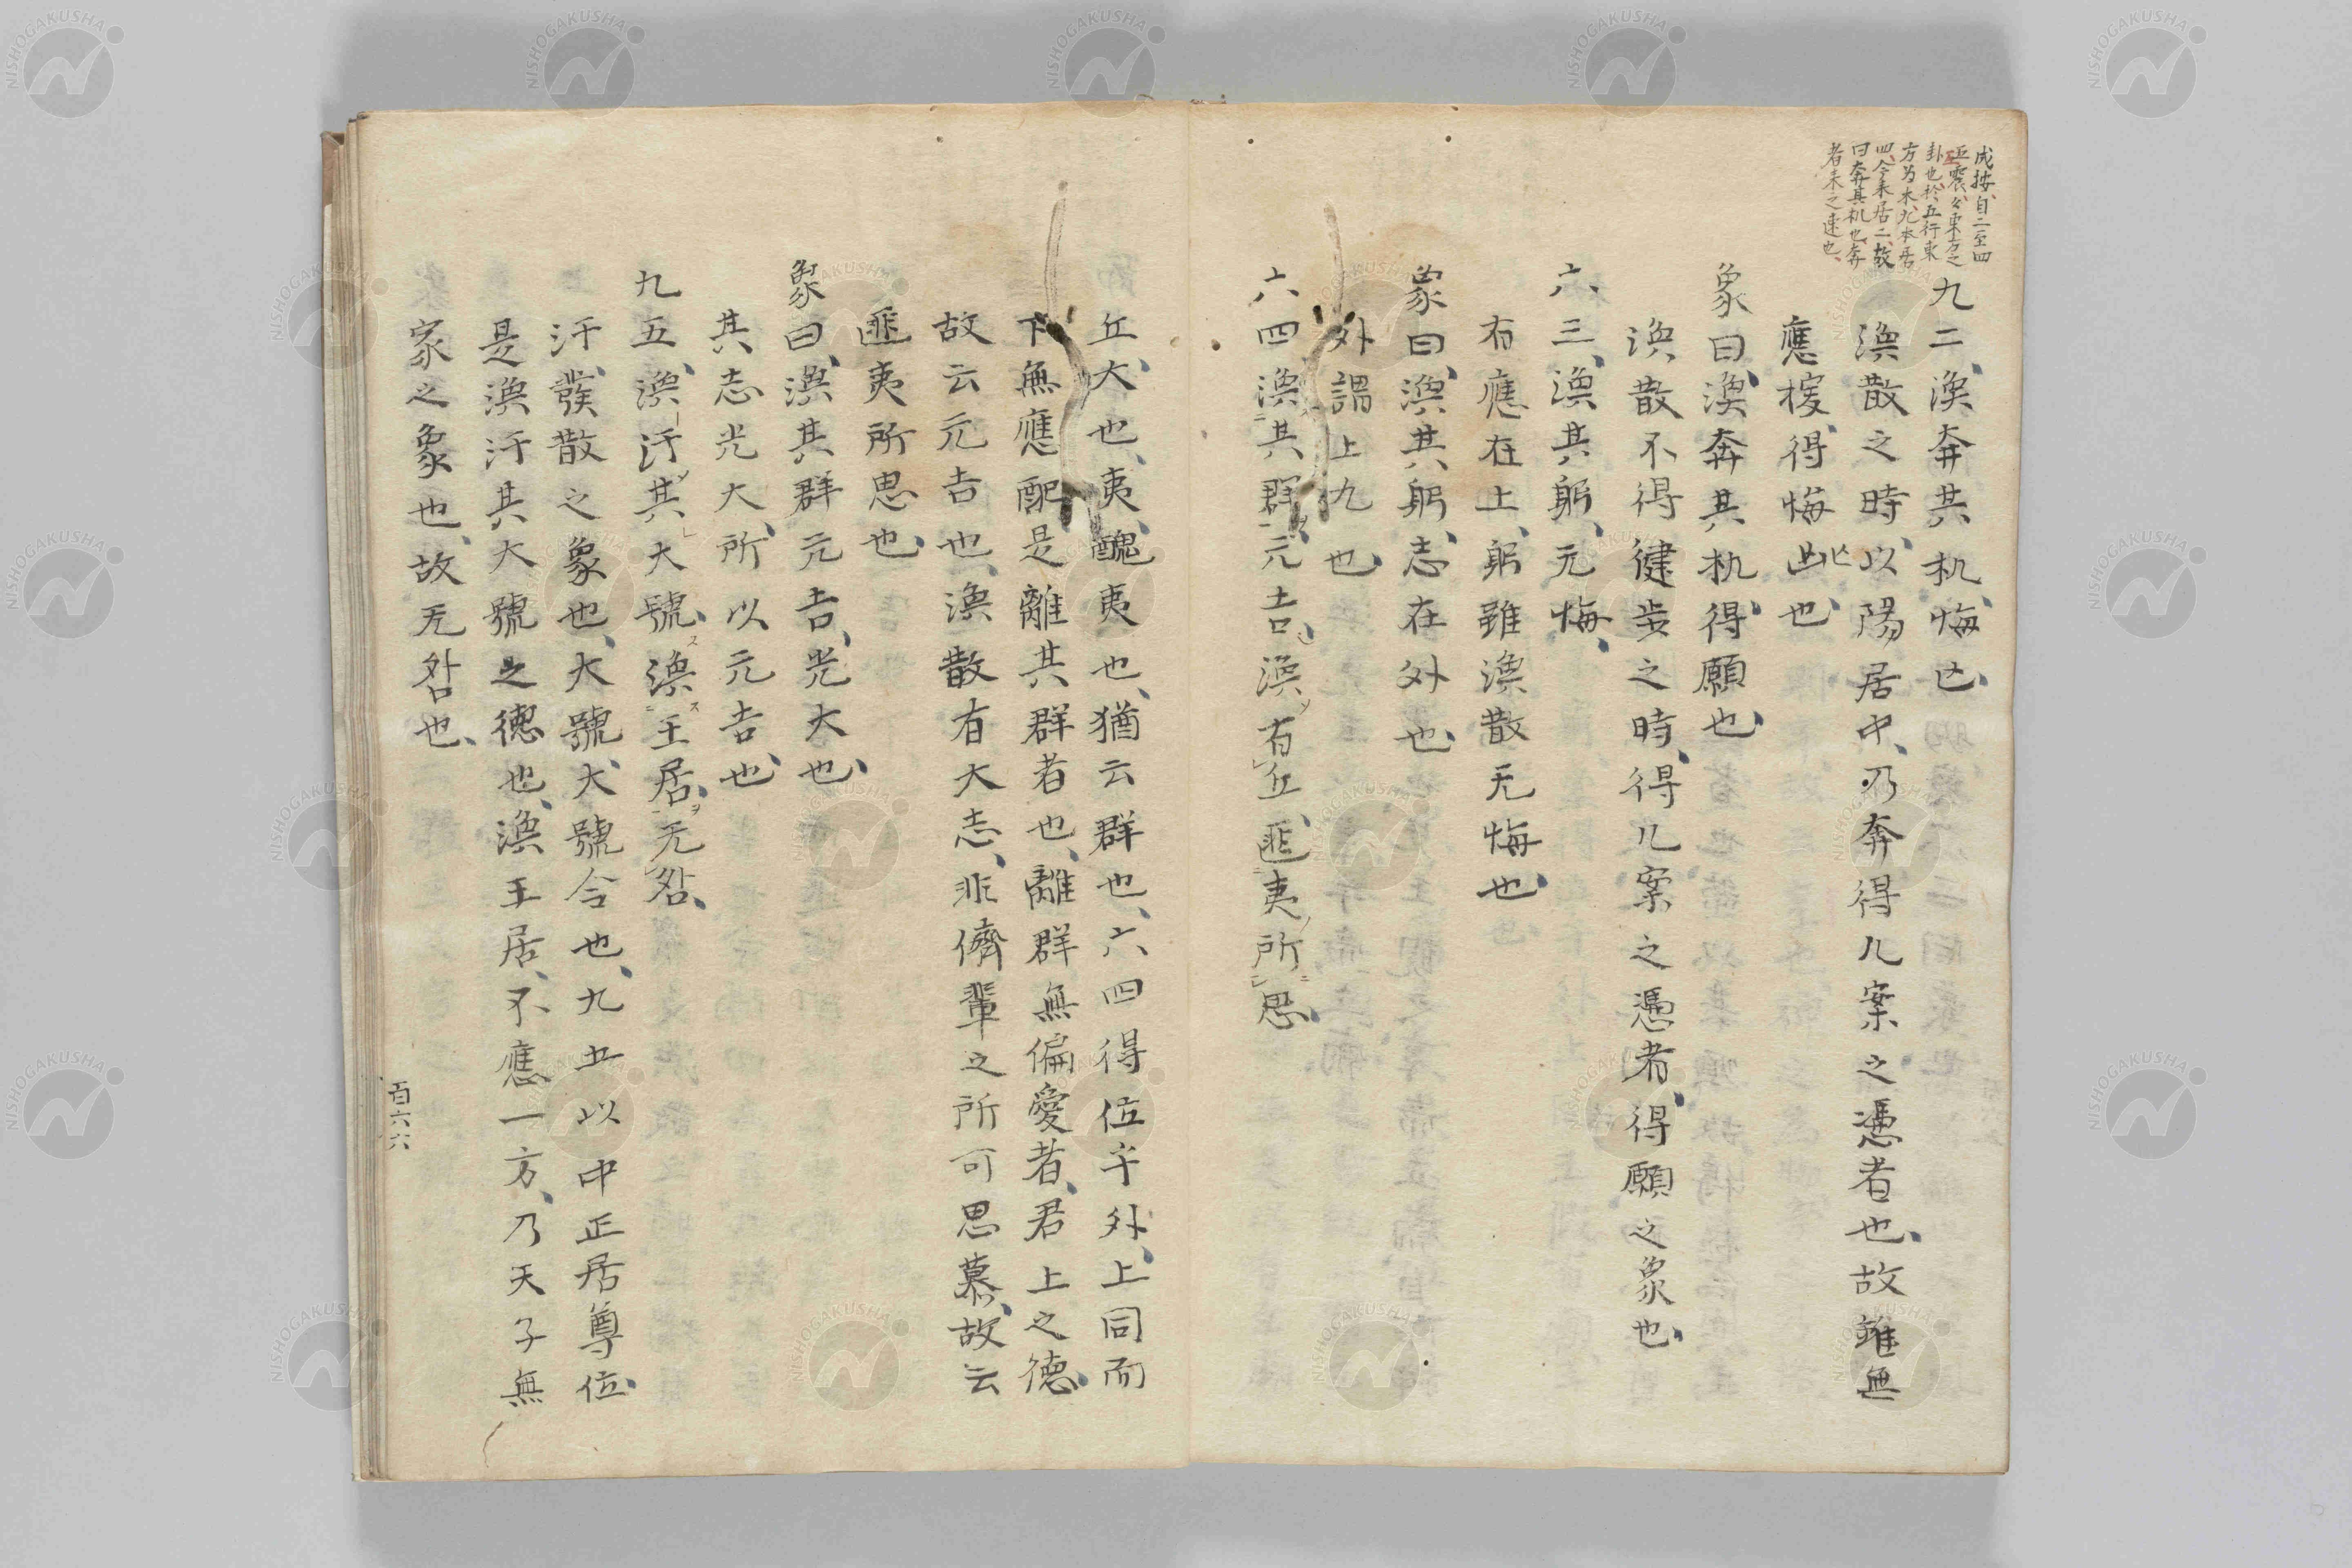 成按、自二至四
互震、々東方之
卦也、於五行東
方为木、九本居
四、今来居二、故
曰奔其机也、奔
者来之速也、
九二、渙奔其机、悔亡、
渙散之時、以陽居中、乃奔得几案之憑者也、故雖無
應援、得悔亡也、
象曰、渙奔其机、得願也、
渙散不得健步之時、得几案之憑者、得願之象也、
六三、渙其躬、无悔、
有應在上、躬雖渙散无悔也、
象曰、渙其躬、志在外也、
外謂上九也、
六四渙其群、元吉、渙有丘、匪夷所思、
丘大也、夷、醜夷也、猶云群也、六四得位乎外、上同而
下無應配、是離其群者也、離群無偏愛者、君上之德、
故云元吉也、渙散有大志、非儕輩之所可思慕、故云
匪夷所思也、
象曰、渙其群元吉、光大也、
其志光大、所以元吉也、
九五、渙汗其大號、渙王居、无咎、
汗、發散之象也、大號、大號令也、九五以中正居尊位、
是渙汗其大號之德也、渙王居、不應一方、乃天子無
家之象也、故无咎也、
百六六
NISHOGAKUSHA